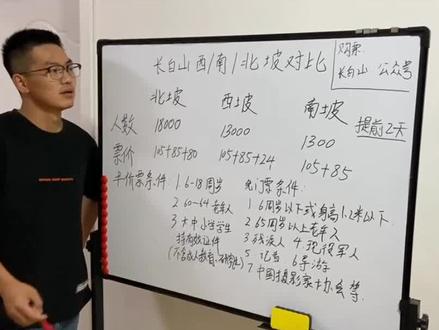 长白山西/南/北坡对比
购票:
长白山 公众号
北坡 西坡 南坡
提前2天
人数 18000 13000 1300
票价 105+85+80 105+85+24 105+85
半价票条件: 1.6-18周岁
2.60-64老年人
3.大中小学学生
持有效证件
(不含成人教育、研究生)
免门票条件:
1.6周岁以下或身高1.2米以下
2.65周岁以上老年人
3.残疾人 4.现役军人
5.记者 6.导游
7.中国摄影家协会等